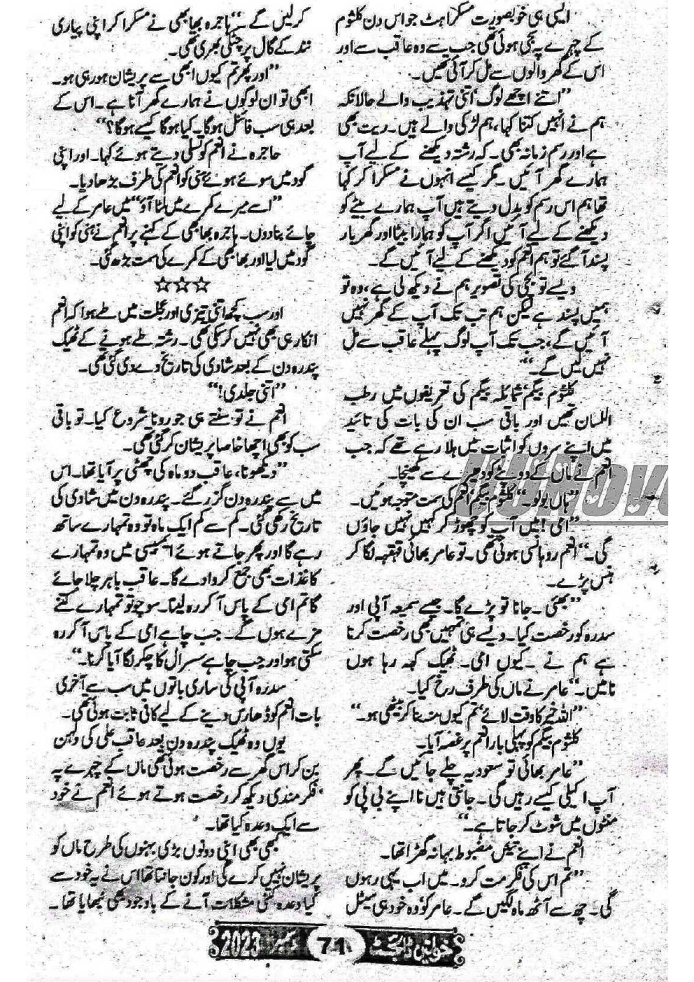 ایسی ہی خوبصورت مسکراہٹ جو اس دن کلثوم
کے چہرے پہ سجی ہوئی تھی جب سے وہ عاقب سے اور
اس کے گھر والوں سے مل کر آئی تھیں۔
”اتنے اچھے لوگ‘ اتنی تہذیب والے حالانکہ
ہم نے انہیں کتنا کہا، ہم لڑکی والے ہیں۔ ریت بھی
ہے اور رسم زمانہ بھی۔ کہ رشتہ دیکھنے کے لیے آپ
ہمارے گھر آئیں۔ مگر کیسے انہوں نے مسکرا کر کہا
تھا ہم اس رسم کو بدل دیتے ہیں آپ ہمارے بیٹے کو
دیکھنے کے لیے آئیں اگر آپ کو ہمارا بیٹا اور گھر بار
پسند آ گئے تو ہم انعم کو دیکھنے کے لیے آئیں گے۔
ویسے تو بچی کی تصویر ہم نے دیکھ لی ہے، وہ تو
ہمیں پسند ہے لیکن ہم تب تک آپ کے گھر نہیں
آئیں گے، جب تک آپ لوگ پہلے عاقب سے مل
نہیں لیں گے۔“
کلثوم بیگم شائلہ بیگم کی تعریفوں میں رطب
اللسان تھیں اور باقی سب ان کی بات کی تائید
میں اپنے سروں کو اثبات میں ہلا رہے تھے کہ جب
انعم نے ماں کے دوپٹے کو دھیرے سے کھینچا۔
”ہاں بولو۔“ کلثوم بیگم انعم کی سمت متوجہ ہوئیں۔
”امی! میں آپ کو چھوڑ کر کہیں نہیں جاؤں
گی۔“ انعم روہانسی ہوئی تھی۔ تو عامر بھائی قہقہہ لگا کر
ہنس پڑے۔
”بھئی۔ جانا تو پڑے گا۔ جیسے سمیعہ آپی اور
سدرہ کو رخصت کیا۔ ویسے ہی تمہیں بھی رخصت کرنا
ہے ہم نے۔ کیوں امی۔ ٹھیک کہہ رہا ہوں
نا میں۔“ عامر نے ماں کی طرف رخ کیا۔
”اللہ خیر کا وقت لائے‘ تم کیوں منہ بنا کر بیٹھی ہو۔“
کلثوم بیگم کو پہلی بار انعم پر غصہ آیا۔
”عامر بھائی تو سعودیہ چلے جائیں گے۔ پھر
آپ اکیلی کیسے رہیں گی۔ جانتی ہیں نا اپنے بی پی کو
منٹوں میں شوٹ کر جاتا ہے۔“
انعم نے اپنے تئیں مضبوط بہانہ گھڑا تھا۔
”تم اس کی فکر مت کرو۔ میں اب یہی رہوں
گی۔ چھ سے آٹھ ماہ لگیں گے۔ عامر کو وہ خود ہی سیٹل
کر لیں گے۔“ ہاجرہ بھابھی نے مسکرا کر اپنی پیاری
نند کے گال پر چٹکی بھری تھی۔
”اور پھر تم کیوں ابھی سے پریشان ہو رہی ہو۔
ابھی تو ان لوگوں نے ہمارے گھر آنا ہے۔ اس کے
بعد ہی سب فائنل ہوگا۔ کیا ہوگا کیسے ہوگا؟“
حاجرہ نے انعم کو تسلی دیتے ہوئے کہا۔ اور اپنی
گود میں سوئے ہوئے ہنی کو انعم کی طرف بڑھا دیا۔
”اسے میرے کمرے میں لٹا آؤ“ میں عامر کے لیے
چائے بنا دوں۔ ہاجرہ بھابھی کے کہنے پر انعم نے ہنی کو اپنی
گود میں لیا اور بھابھی کے کمرے کی سمت بڑھ گئی۔
☆☆☆
اور سب کچھ اتنی تیزی اور عجلت میں طے ہوا کہ انعم
انکار ہی بھی نہیں کر سکی تھی۔ رشتہ طے ہونے کے ٹھیک
پندرہ دن کے بعد شادی کی تاریخ دے دی گئی تھی۔
”اتنی جلدی!“
انعم نے تو سنتے ہی جو رونا شروع کیا۔ تو باقی
سب کو بھی اچھا خاصا پریشان کر گئی تھی۔
”دیکھو نا، عاقب دو ماہ کی چھٹی پر آیا تھا۔ اس
میں سے پندرہ دن گزر گئے۔ پندرہ دن میں شادی کی
تاریخ رکھی گئی۔ کم سے کم ایک ماہ تو وہ تمہارے ساتھ
رہے گا اور پھر جاتے ہوئے ایمبیسی میں وہ تمہارے
کاغذات بھی جمع کروا دے گا۔ عاقب باہر چلا جائے
گا تم امی کے پاس آ کر رہ لینا۔ سوچو تو تمہارے کتنے
مزے ہوں گے۔ جب چاہے امی کے پاس آ کر رہ
سکتی ہو اور جب چاہے سسرال کا چکر لگا آیا کرنا۔“
سدرہ آپی کی ساری باتوں میں سب سے آخری
بات انعم کو ڈھارس دینے کے لیے کافی ثابت ہوئی تھی۔
یوں وہ ٹھیک پندرہ دن بعد عاقب علی کی دلہن
بن کر اس گھر سے رخصت ہوئی تھی ماں کے چہرے پہ
فکر مندی دیکھ کر رخصت ہوتے ہوئے انعم نے خود
سے ایک وعدہ کیا تھا۔
کبھی بھی اپنی دونوں بڑی بہنوں کی طرح ماں کو
پریشان نہیں کرے گی اور کون جانتا تھا اس نے یہ خود سے
کیا وعدہ کتنی مشکلات آنے کے باوجود بھی نبھایا تھا۔
خواتین ڈائجسٹ 71 دسمبر 2023